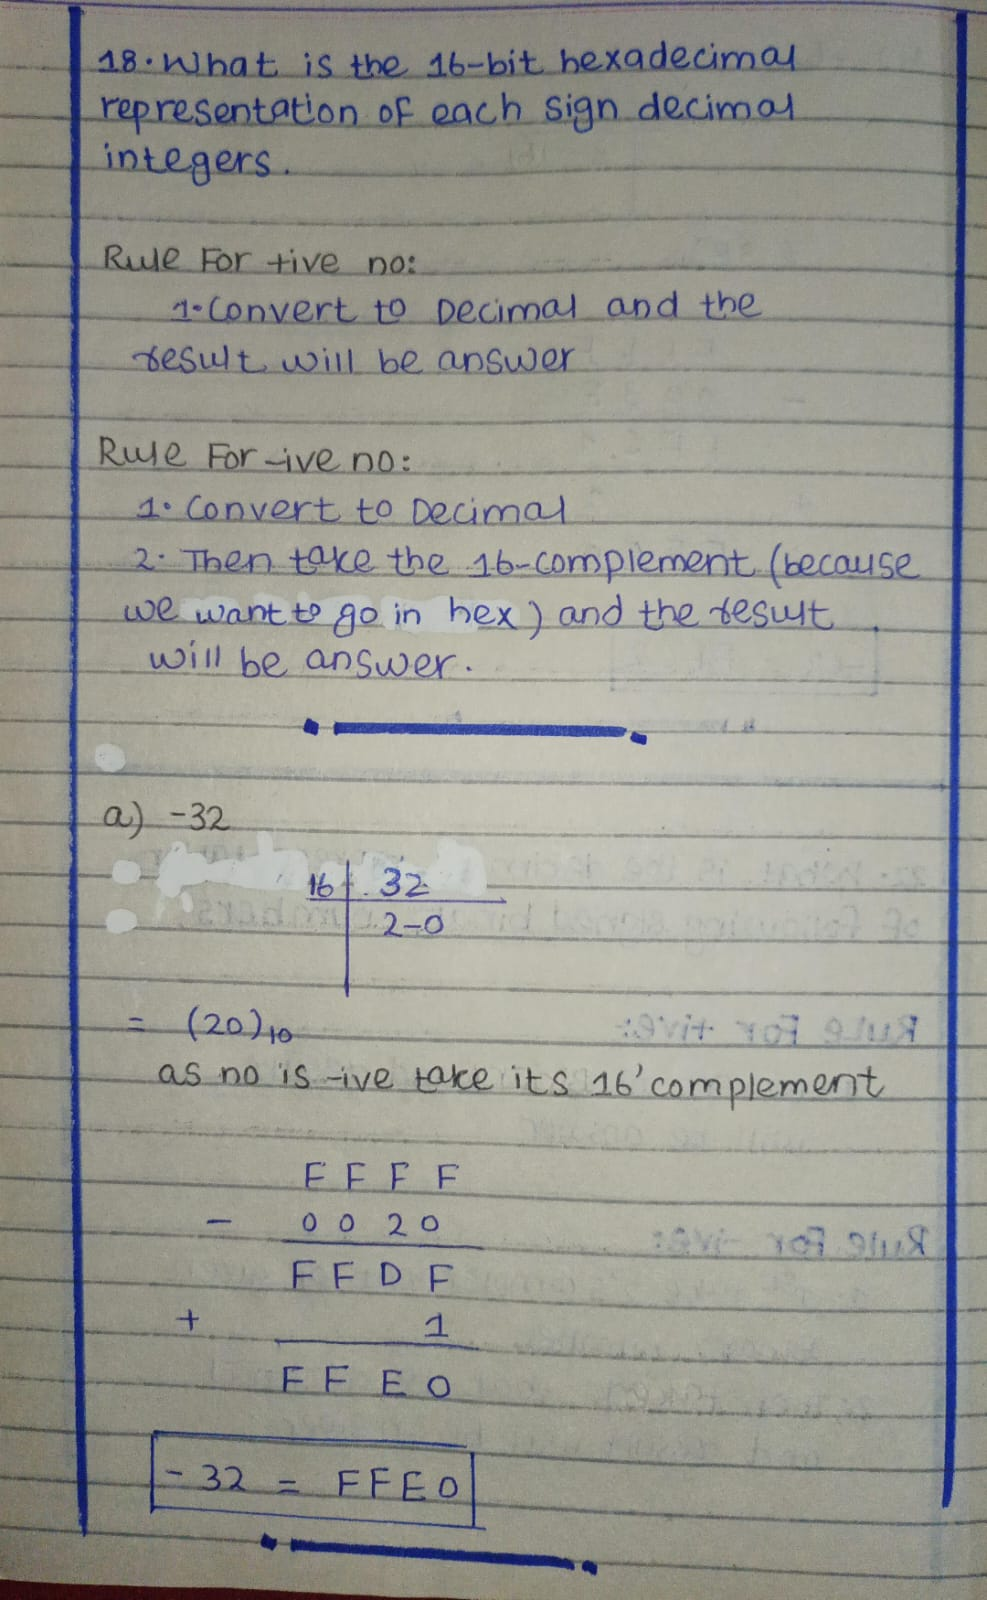 18. What is the 16-bit hexadecimal
representation of each sign decimal
integers.
Rule For +ive no:
1. Convert to Decimal and the
result will be answer
Rule For -ive no:
1. Convert to Decimal
2. Then take the 16-complement (because
we want to go in hex) and the result
will be answer.
a) -32
16 32
2-0
= (20)10
as no is -ive take its 16' complement
F F F F
- 0 0 2 0
F F D F
+ 1
F F E 0
-32 = FFE0